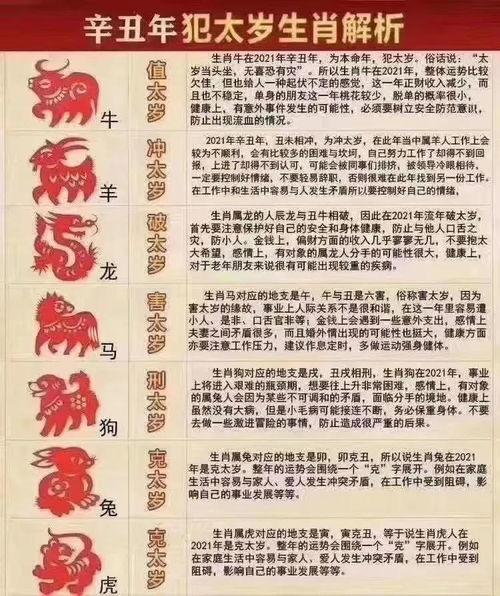 辛丑年犯太岁生肖解析
牛
值太岁
生肖牛在2021年辛丑年，为本命年，犯太岁。俗话说：“太
岁当头坐，无喜恐有灾”。所以生肖牛在2021年，整体运势比较
欠佳，但也给人一种起伏不定的感觉，这一年正财收入减少，而
且也不稳定，单身的朋友这一年桃花较少，脱单的概率很小，
健康上，有意外事件发生的可能性，必须要树立安全防范意识，
防止出现流血的情况。
羊
冲太岁
2021年辛丑，丑未相冲，为冲太岁，在此年当中属羊人工作上会
较为不顺利，会有比较多的困难与坎坷，自己努力工作了却得不到回
报，上进了却得不到认可，可能会被同事们排挤，被领导冷眼相待，
一定要控制好情绪，不要轻易辞职，否则很难在此年找到另一份工作。
在工作中和生活中容易与人发生矛盾所以要控制好自己的情绪，
龙
破太岁
生肖属龙的人辰龙与丑牛相破，因此在2021年流年破太岁，
首先要注意保护好自己的安全和身体健康，防止与他人口舌之
灾，防小人。金钱上，偏财方面的收入几乎寥寥无几，不要抱太
大希望，感情上，有对象的属龙人分手的可能性很大，健康上，
对于老年朋友来说很有可能出现较重的疾病。
马
害太岁
生肖马对应的地支是午，午与丑是六害，俗称害太岁，因为
害太岁的缘故，事业上人际关系不是很和谐，在这一年里容易遭小
人、是非、口舌官非等；金钱上会遇到一些意外支出，感情上
夫妻之间矛盾很多，而且婚外情出现的可能性也挺大，健康方面
亦要注意工作压力，建议作息定时，多做运动强身健体。
狗
刑太岁
生肖狗对应的地支是戌，丑戌相刑，生肖狗在2021年，事业
上将进入艰难的瓶颈期，想要往上升非常困难，感情上，有对象
的属兔人会因为某些不可调和的矛盾，面临分手的境地。健康上
虽然没有大病，但是小毛病可能接连不断，务必保重身体。不要
去做一些激进冒险的事情，防止造成很严重的后果。
兔
克太岁
生肖属兔对应的地支是卯，卯克丑，所以说生肖兔在2021
年是克太岁。整年的运势会围绕一个“克”字展开。例如在家庭
生活中容易与家人、爱人发生冲突矛盾，在工作中受到阻碍，影
响自己的事业发展等等。
虎
克太岁
生肖属虎对应的地支是寅，寅克丑，等于说生肖虎人在
2021年是克太岁。整年的运势会围绕一个“克”字展开。例如
在家庭生活中容易与家人、爱人发生冲突矛盾，在工作中受到
阻碍，影响自己的事业发展等等。